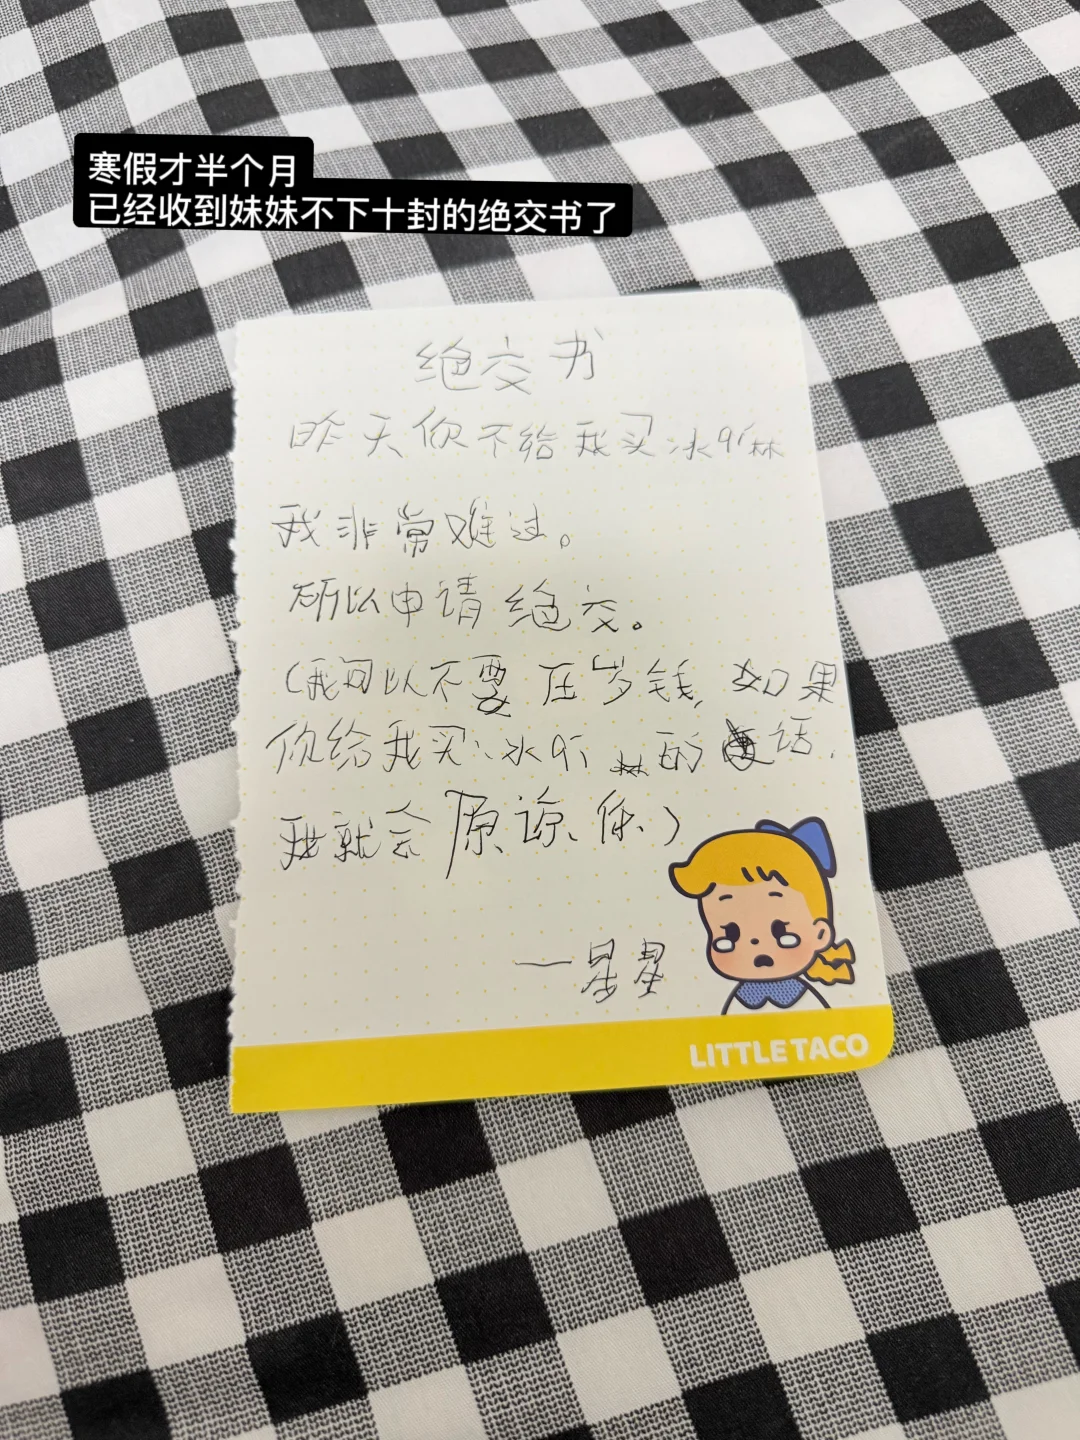 寒假才半个月
已经收到妹妹不下十封的绝交书了
绝交书
昨天你不给我买冰9林
我非常难过。
所以申请绝交。
(我可以不要压岁钱,如果
你给我买冰9林的话,
我就会原谅你)
—星星
LITTLE TACO